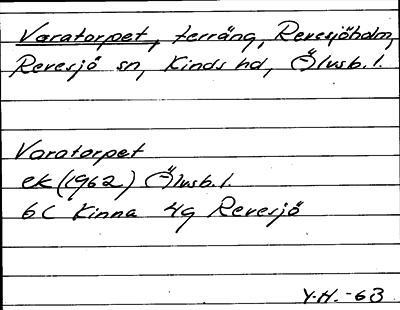 Varatorpet, terräng, Revesjöholm,
Revesjö sn, Kinds hd, Älvsb. l.
Varatorpet
ek (1962) Älvsb. l.
6C Kinna 4g Revesjö
Y.H. -63